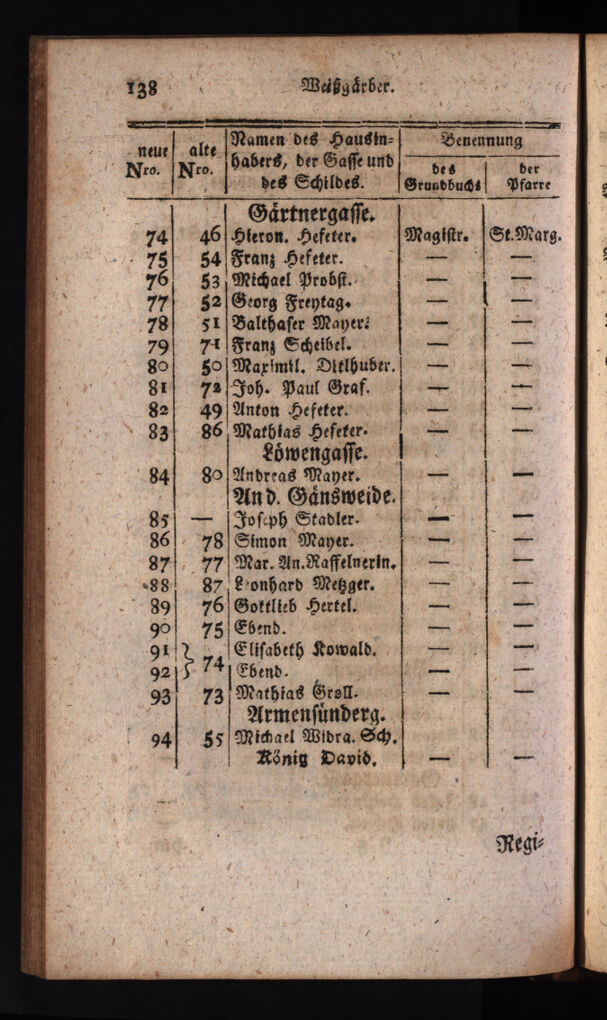 138 Weißgärber.
neue Nro. alte Nro. Namen des Hausin= Benennung
habers, der Gasse und des der
des Schildes. Grundbuchs Pfarre
Gärtnergasse.
74 46 Hieron. Hefeter. Magistr. St. Marg.
75 54 Franz Hefeter. — —
76 53 Michael Probst. — —
77 52 Georg Freytag. — —
78 51 Balthaser Mayer. — —
79 71 Franz Scheibel. — —
80 50 Maximil. Ditlhuber. — —
81 72 Joh. Paul Graf. — —
82 49 Anton Hefeter. — —
83 86 Mathias Hefeter. — —
Löwengasse.
84 80 Andreas Mayer. — —
An d. Gänsweide.
85 — Joseph Stadler. — —
86 78 Simon Mayer. — —
87 77 Mar. An. Raffelnerin. — —
88 87 Leonhard Metzger. — —
89 76 Gottlieb Hertel. — —
90 75 Ebend. — —
91 } 74 Elisabeth Kowald. — —
92 } Ebend. — —
93 73 Mathias Groll. — —
Armensünderg.
94 55 Michael Widra. Sch.
König David. — —
Regi=